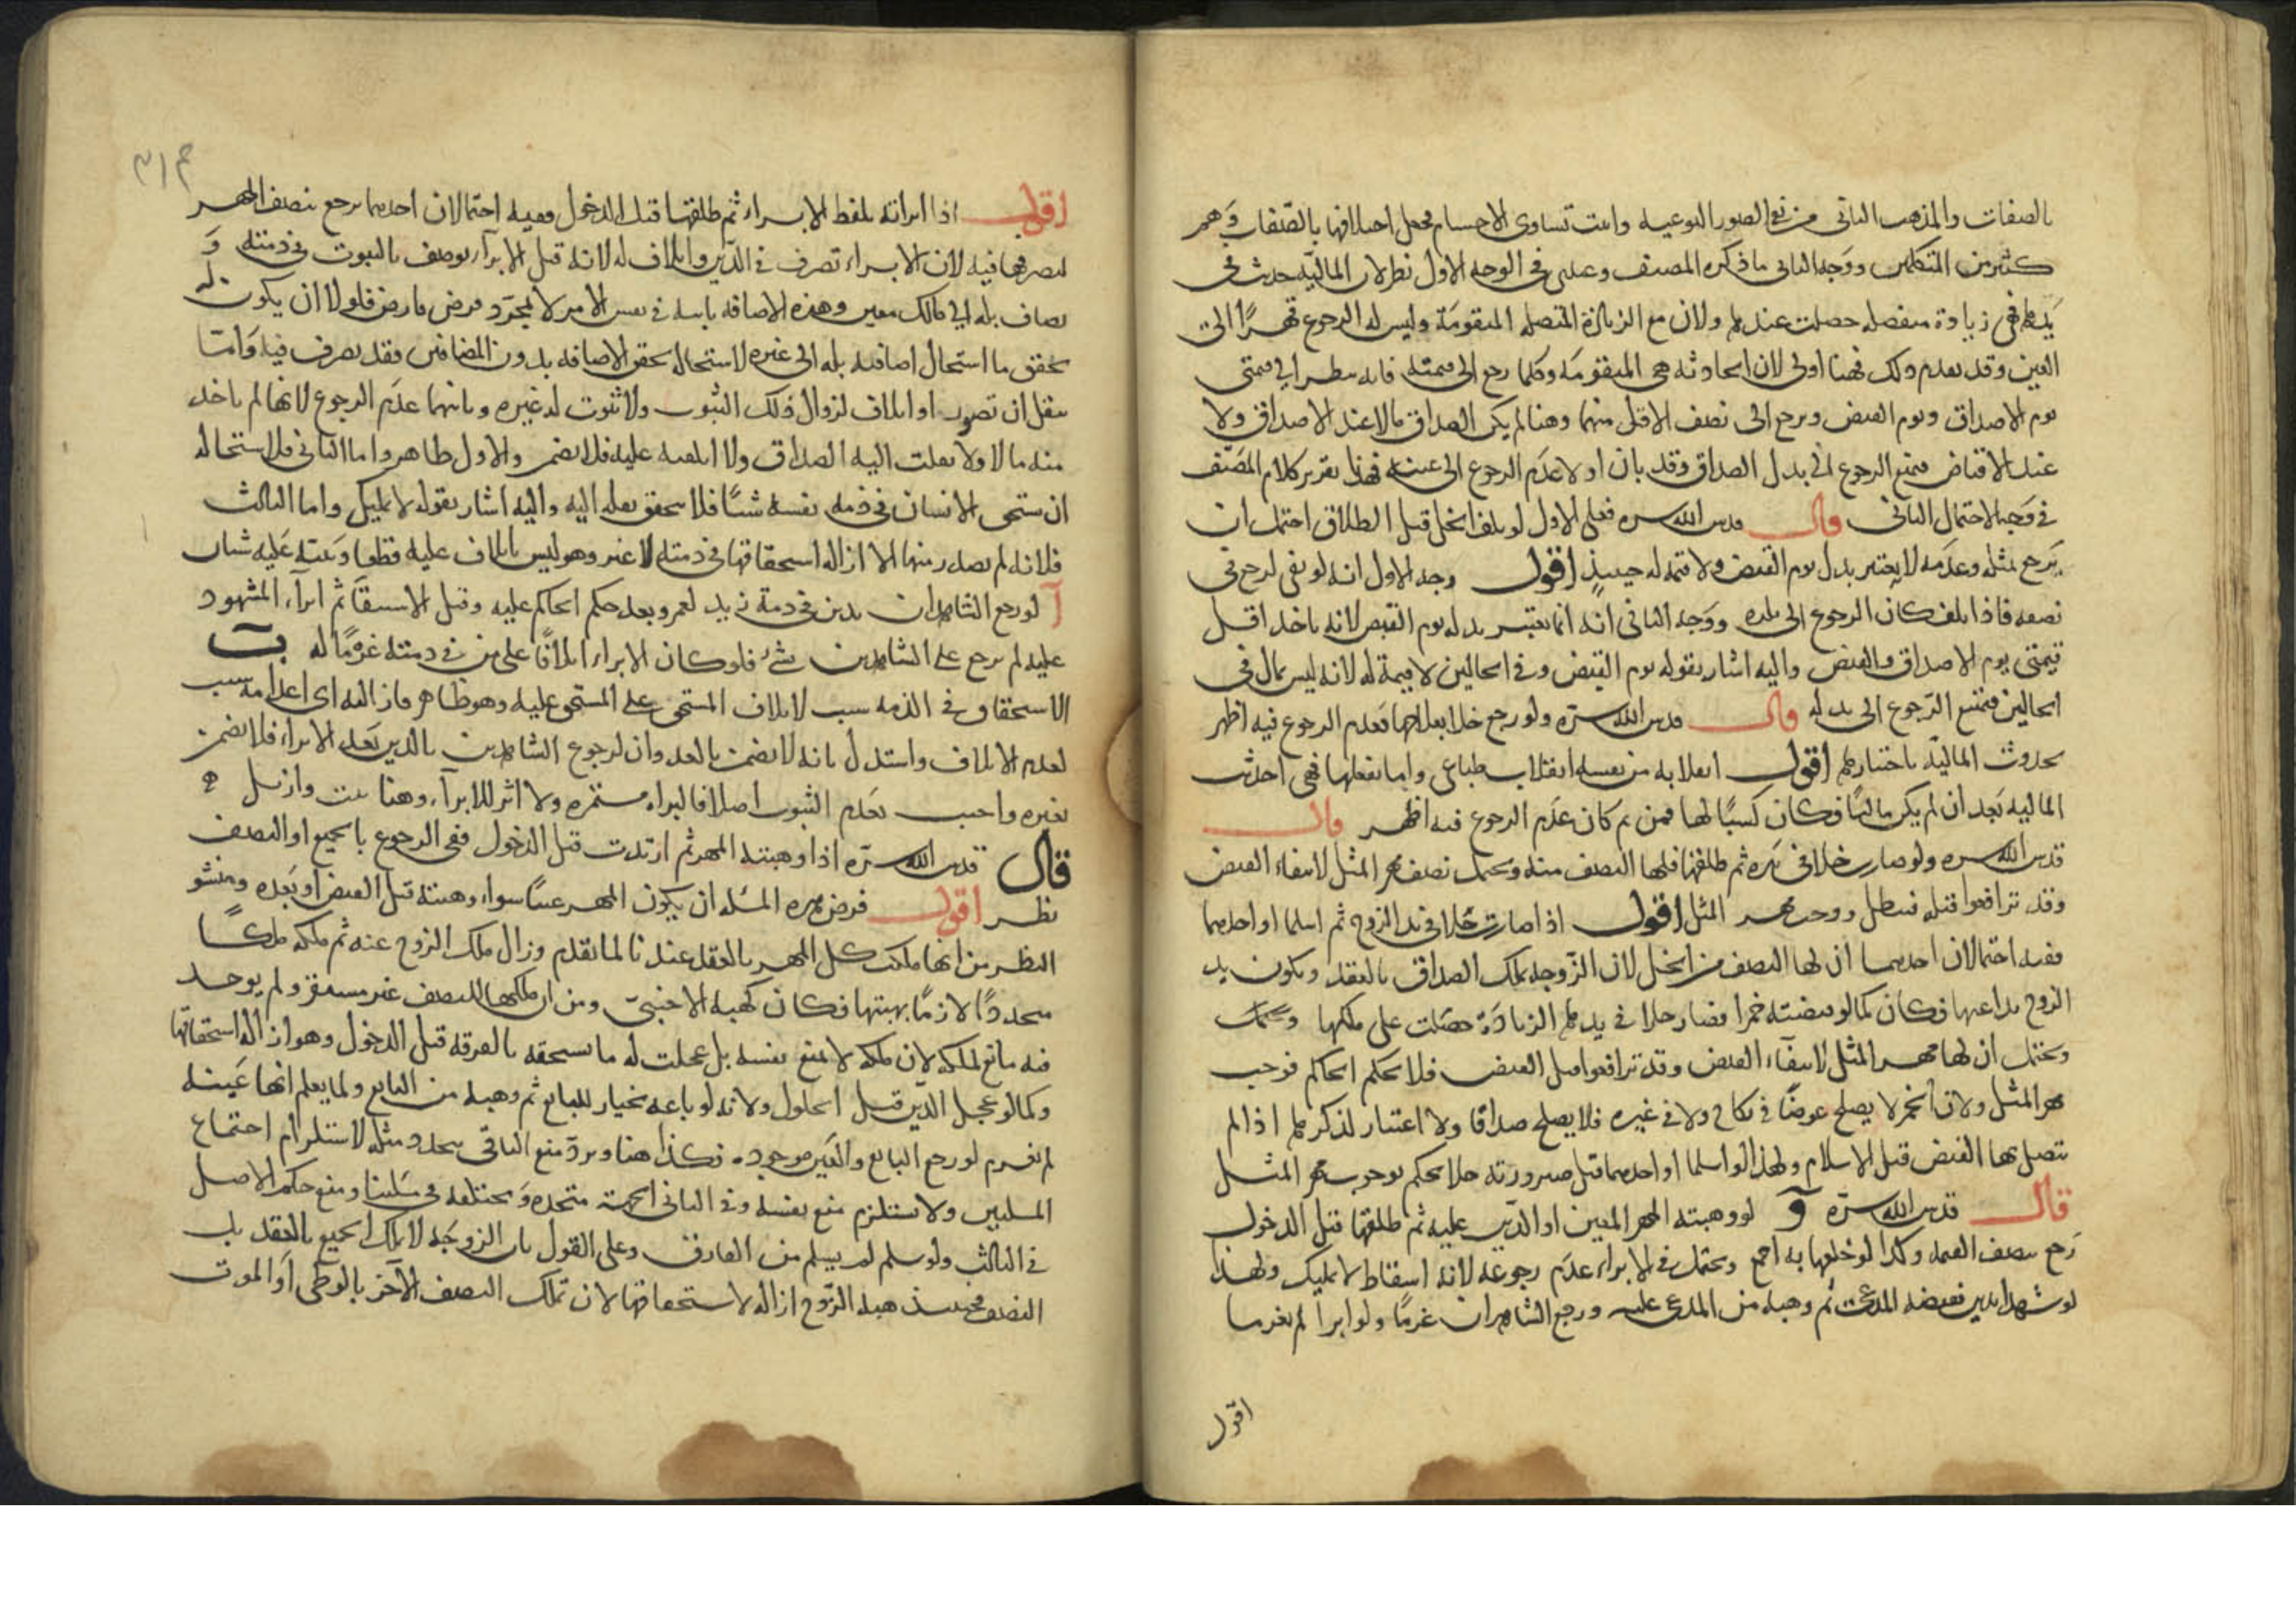 بالصفات والمذهب الثاني من نفى الصور النوعية واثبت تساوى الاجسام فجعل اختلافها بالصفات وهم
كثير من المتكلمين ووجه الثاني ما ذكره المصنف وعندي في الوجه الاول نظر لان المالية حدثت في
يدها فهي زيادة منفصلة حصلت عندها ولان مع الزيادة المتصلة المتقومة وليس له الرجوع قهرا الى
العين وقد تقدم ذلك فهنا اولى لان الحادثة هي المتقومة وكلما رجع الى قيمته فانه ينظر الى قيمتي
يوم الاصداق ويوم القبض ويرجع الى نصف الاقل منهما وهنا لم يكن الصداق مالا عند الاصداق ولا
عند الاقباض فيمنع الرجوع الى بدل الصداق وقد بان اولا عدم الرجوع الى عينه فهذا تقرير كلام المصنف
في وجه الاحتمال الثاني قال قدس الله سره فعلى الاول لو تلف الخل قبل الطلاق احتمل ان
يرجع بمثله وعدمه لا يعتبر بدل يوم القبض ولا قيمة له حينئذ اقول وجه الاول انه لو بقى لرجع في
نصفه فاذا تلف كان الرجوع الى بدله ووجه الثاني انه انما يعتبر بدله يوم القبض لانه ياخذ اقل
قيمتي يوم الاصداق والقبض واليه اشار بقوله يوم القبض وفي الحالين لا قيمة له لانه ليس بمال في
الحالين فيمتنع الرجوع الى بدله قال قدس الله سره ولو رجع خلا بعلاجها فعدم الرجوع فيه اظهر
لحدوث المالية باختيارها اقول انقلابه من نفسه انقلاب طباعى واما بفعلها فهي احدثت
المالية بعد ان لم يكن مالا فكان كسبا لها فمن ثم كان عدم الرجوع فيه اظهر قال
قدس الله سره ولو صار خلا في يده ثم طلقها فلها النصف منه ويحتمل نصف مهر المثل لانتفاء القبض
وقد ترافعوا قبله فبطل ووجب مهر المثل اقول اذا صارت خلا في يد الزوج ثم اسلما او احدهما
ففيه احتمالان احدهما ان لها النصف من الخل لان الزوجة تملك الصداق بالعقد ويكون يد
الزوج يدا عنها فكان كما لو قبضته خمرا فصار خلا في يدها الزيادة حصلت على ملكها ويحتمل
ويحتمل ان لها مهر المثل لانتفاء القبض وقد ترافعوا قبل القبض فلا يحكم الحاكم فوجب
مهر المثل ولان الخمر لا يصلح عوضا في نكاح ولا في غيره فلا يصلح صداقا ولا اعتبار لذكرها اذا لم
يتصل بها القبض قبل الاسلام ولهذا لو اسلما او احدهما قبل صيرورته خلا يحكم بوجوب مهر المثل
قال قدس الله سره و لو وهبته المهر المعين او الدين عليه ثم طلقها قبل الدخول
رجع بنصف القيمة وكذا لو خلعها به اجمع ويحتمل في الابراء عدم رجوعه لانه اسقاط لا تمليك ولهذا
لو شهدا بدين فقبضه المدعى ثم وهبه من المدعى عليه ورجع الشاهدان غرما ولو ابرا لم يغرما
اقول
٣١٣
اقول اذا ابراته بلفظ الابراء ثم طلقها قبل الدخول ففيه احتمالان احدهما يرجع بنصف المهر
لتصرفها فيه لان الابراء تصرف في الدين واتلاف له لانه قبل الابراء يوصف بالثبوت في ذمته و
يضاف بله الى مالك معين وهذه الاضافة ثابتة في نفس الامر لا بمجرد فرض فارض فلولا ان يكون له
تحقق ما استحال اضافته بله الى غيره لاستحالة تحقق الاضافة بدون المضافين فقد تصرف فيه وامتا
ينقل ان تصور او اتلاف لزوال ذلك الثبوت ولا ثبوت له غيره وثانيهما عدم الرجوع لانها لم تاخذ
منه مالا ولا نقلت اليه الصداق ولا اتلفته عليه فلا تضمن والاول ظاهر واما الثاني فلاستحالة
ان يستحق الانسان في ذمة نفسه شيئا فلا يتحقق نقله اليه واليه اشار بقوله لا تمليك واما الثالث
فلانه لم يصدر منها الا ازالة استحقاقها في ذمته لا غير وهو ليس باتلاف عليه قطعا ونبه عليه شيئان
آ لو رجع الشاهدان بدين في ذمة زيد لعمرو بعد حكم الحاكم عليه وقبل الاستيفاء ثم ابراء المشهود
عليه لم يرجع على الشاهدين بشيء فلو كان الابراء اتلافا على من في ذمته غرما له ب
الاستحقاق في الذمة سبب لاتلاف المستحق على المستحق عليه وهو ظاهر فازالته اى اعدامه سبب
لعدم الاتلاف واستدل بانه لا يضمن بالعدوان لرجوع الشاهدين بالدين بعد الابراء فلا يضمن
بغيره واجيب بعدم الثبوت اصلا فالبراءة مستمرة ولا اثر للابراء وهنا ثبت وازيل
قال قدس الله سره اذا وهبته المهر ثم ارتدت قبل الدخول ففي الرجوع بالجميع او النصف
نظر اقول فرض هذه المسئلة ان يكون المهر عينا سواء وهبته قبل القبض او بعده ومنشؤ
النظر من انها ملكت كل المهر بالعقد عندنا لما تقدم وزال ملك الزوج عنه ثم ملكه ملكا
مجددا لازما بهبتها فكان كهبة الاجنبى ومن ان ملكها للنصف غير مستقر ولم يوجد
فيه مانع لملكه لان ملكه لا يمنع نفسه بل عجلت له ما يستحقه بالفرقة قبل الدخول وهو ازالة استحقاقها
وكما لو عجل الدين قبل الحلول ولانه لو باعه بخيار للبائع ثم وهبه من البايع ولما يعلم انها عينه
لم يغرم لو رجع البايع والعين موجودة فكذا هنا ويرد منع الثاني بتجدد مثله لاستلزام اجتماع
المثلين ولا يستلزم منع نفسه وفي الثاني الجهة متحدة ومختلفة في مسئلتنا ومنع حكم الاصل
في الثالث ولو سلم لم يسلم من الفارق وعلى القول بان الزوجة لا تملك الجميع بالعقد بل
النصف فحينئذ هبة الزوج ازالة لاستحقاقها لان تملك النصف الاخر بالوطى او الموت